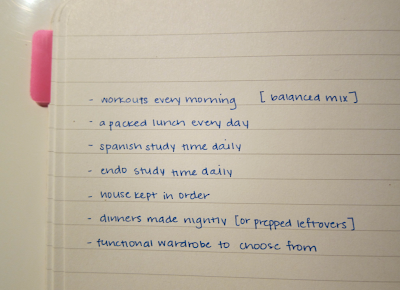 - workouts every morning [balanced mix]
- a packed lunch every day
- spanish study time daily
- endo study time daily
- house kept in order
- dinners made nightly [or prepped leftovers]
- functional wardrobe to choose from